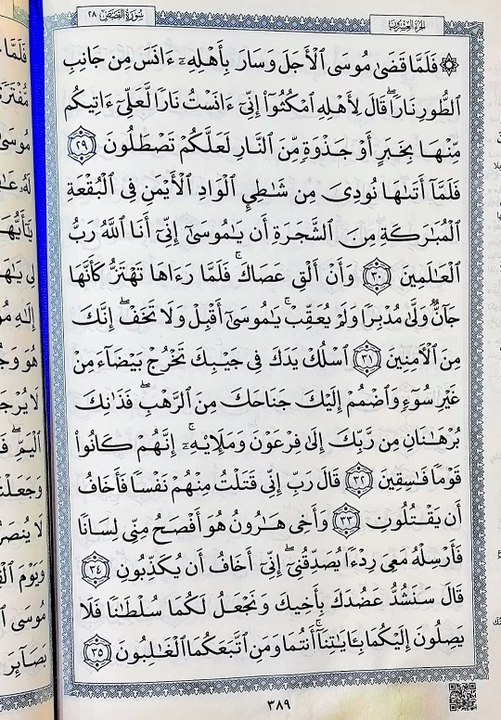 سُورَةُ القَصَصِ ٢٨
الجزء العشرون
۞ فَلَمَّا قَضَىٰ مُوسَى ٱلْأَجَلَ وَسَارَ بِأَهْلِهِۦٓ ءَانَسَ مِن جَانِبِ
ٱلطُّورِ نَارًاۖ قَالَ لِأَهْلِهِ ٱمْكُثُوٓا۟ إِنِّىٓ ءَانَسْتُ نَارًا لَّعَلِّىٓ ءَاتِيكُم
مِّنْهَا بِخَبَرٍ أَوْ جَذْوَةٍ مِّنَ ٱلنَّارِ لَعَلَّكُمْ تَصْطَلُونَ ٢٩
فَلَمَّآ أَتَىٰهَا نُودِىَ مِن شَٰطِئِ ٱلْوَادِ ٱلْأَيْمَنِ فِى ٱلْبُقْعَةِ
ٱلْمُبَٰرَكَةِ مِنَ ٱلشَّجَرَةِ أَن يَٰمُوسَىٰٓ إِنِّىٓ أَنَا ٱللَّهُ رَبُّ
ٱلْعَٰلَمِينَ ٣٠ وَأَنْ أَلْقِ عَصَاكَۖ فَلَمَّا رَءَاهَا تَهْتَزُّ كَأَنَّهَا
جَآنٌّ وَلَّىٰ مُدْبِرًا وَلَمْ يُعَقِّبْۚ يَٰمُوسَىٰٓ أَقْبِلْ وَلَا تَخَفْۖ إِنَّكَ
مِنَ ٱلْءَامِنِينَ ٣١ ٱسْلُكْ يَدَكَ فِى جَيْبِكَ تَخْرُجْ بَيْضَآءَ مِنْ
غَيْرِ سُوٓءٍ وَٱضْمُمْ إِلَيْكَ جَنَاحَكَ مِنَ ٱلرَّهْبِۖ فَذَٰنِكَ
بُرْهَٰنَانِ مِن رَّبِّكَ إِلَىٰ فِرْعَوْنَ وَمَلَإِي۟هِۦٓۚ إِنَّهُمْ كَانُوا۟
قَوْمًا فَٰسِقِينَ ٣٢ قَالَ رَبِّ إِنِّى قَتَلْتُ مِنْهُمْ نَفْسًا فَأَخَافُ
أَن يَقْتُلُونِ ٣٣ وَأَخِى هَٰرُونُ هُوَ أَفْصَحُ مِنِّى لِسَانًا
فَأَرْسِلْهُ مَعِىَ رِدْءًا يُصَدِّقُنِىٓۖ إِنِّىٓ أَخَافُ أَن يُكَذِّبُونِ ٣٤
قَالَ سَنَشُدُّ عَضُدَكَ بِأَخِيكَ وَنَجْعَلُ لَكُمَا سُلْطَٰنًا فَلَا
يَصِلُونَ إِلَيْكُمَا بِـَٔايَٰتِنَآۚ أَنتُمَا وَمَنِ ٱتَّبَعَكُمَا ٱلْغَٰلِبُونَ ٣٥
٣٨٩